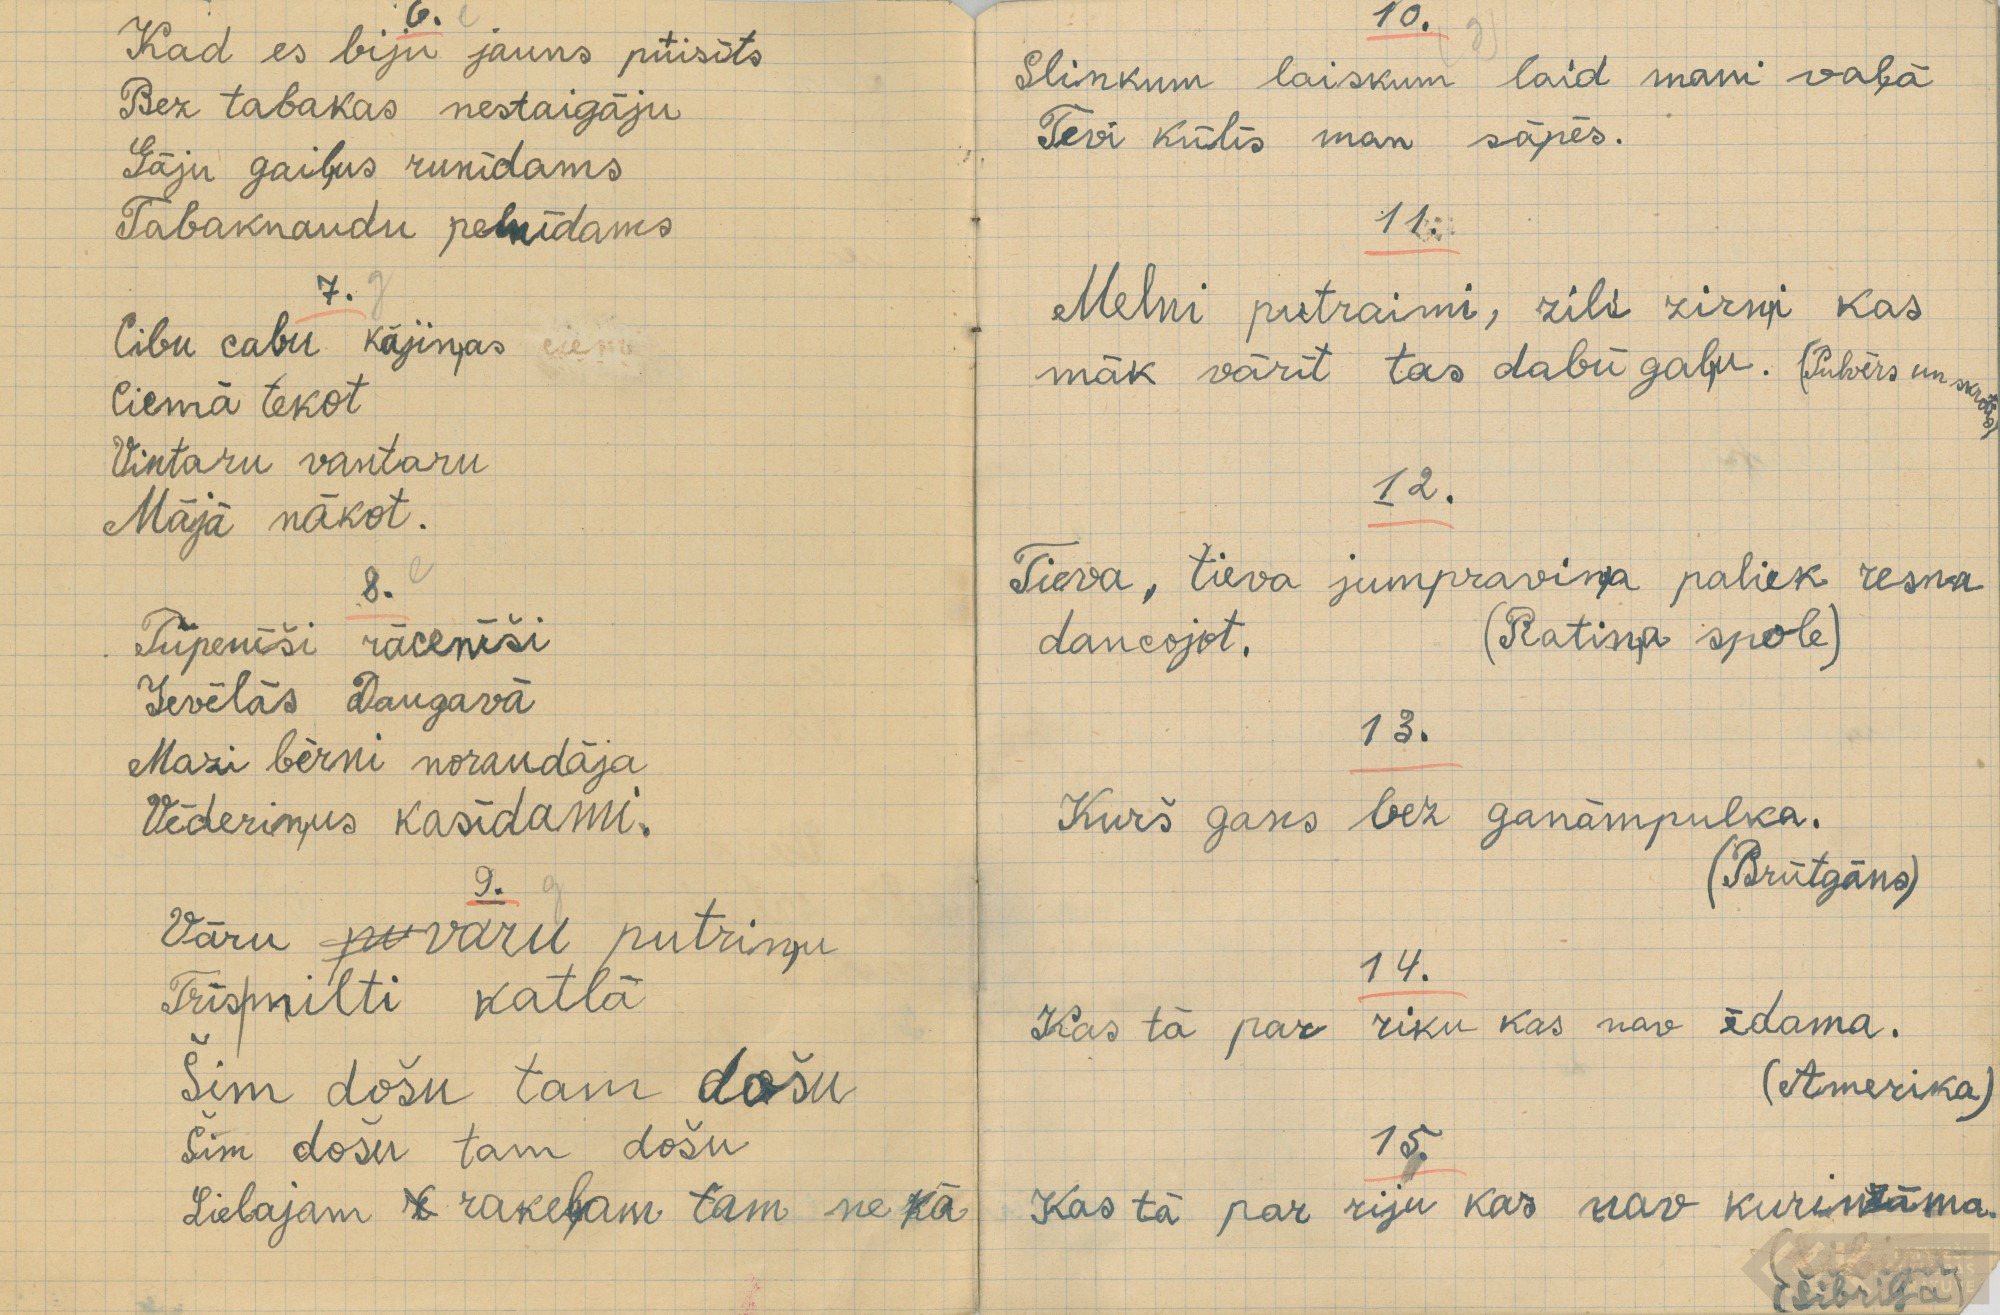 6.
Kad es biju jauns puisīts
Bez tabakas nestaigāju
Gāju gaiļus runīdams
Tabaknaudu pelnīdams
7. g
Cibu cabu kājiņas
Ciemā tekot
Vintaru vantaru
Mājā nākot.
8. e
Tūpenīši rāceņīši
Ievēlās Daugavā
Mazi bērni noraudāja
Vēderiņus kasīdami.
9. g
Vāru pu varu putriņu
Trīs milti katlā
Šim došu tam došu
Šim došu tam došu
Lielajam rakeļam tam ne kā
10. (g)
Slinkum laiskum laid mani vaļā
Tēvi kūlīs man sāpēs.
11.
Melni putraimi, zili zirņi kas
māk vārīt tas dabū gaļu. (Pulvērs un skrotis)
12.
Tieva, tieva jumpraviņa paliek resna
dancojot. (Ratiņa spole)
13.
Kurš gans bez ganāmpulka.
(Brūtgāns)
14.
Kas tā par riku kas nav ēdama.
(Amerika)
15.
Kas tā par riju kas nav kurināma.
(Sibirija)